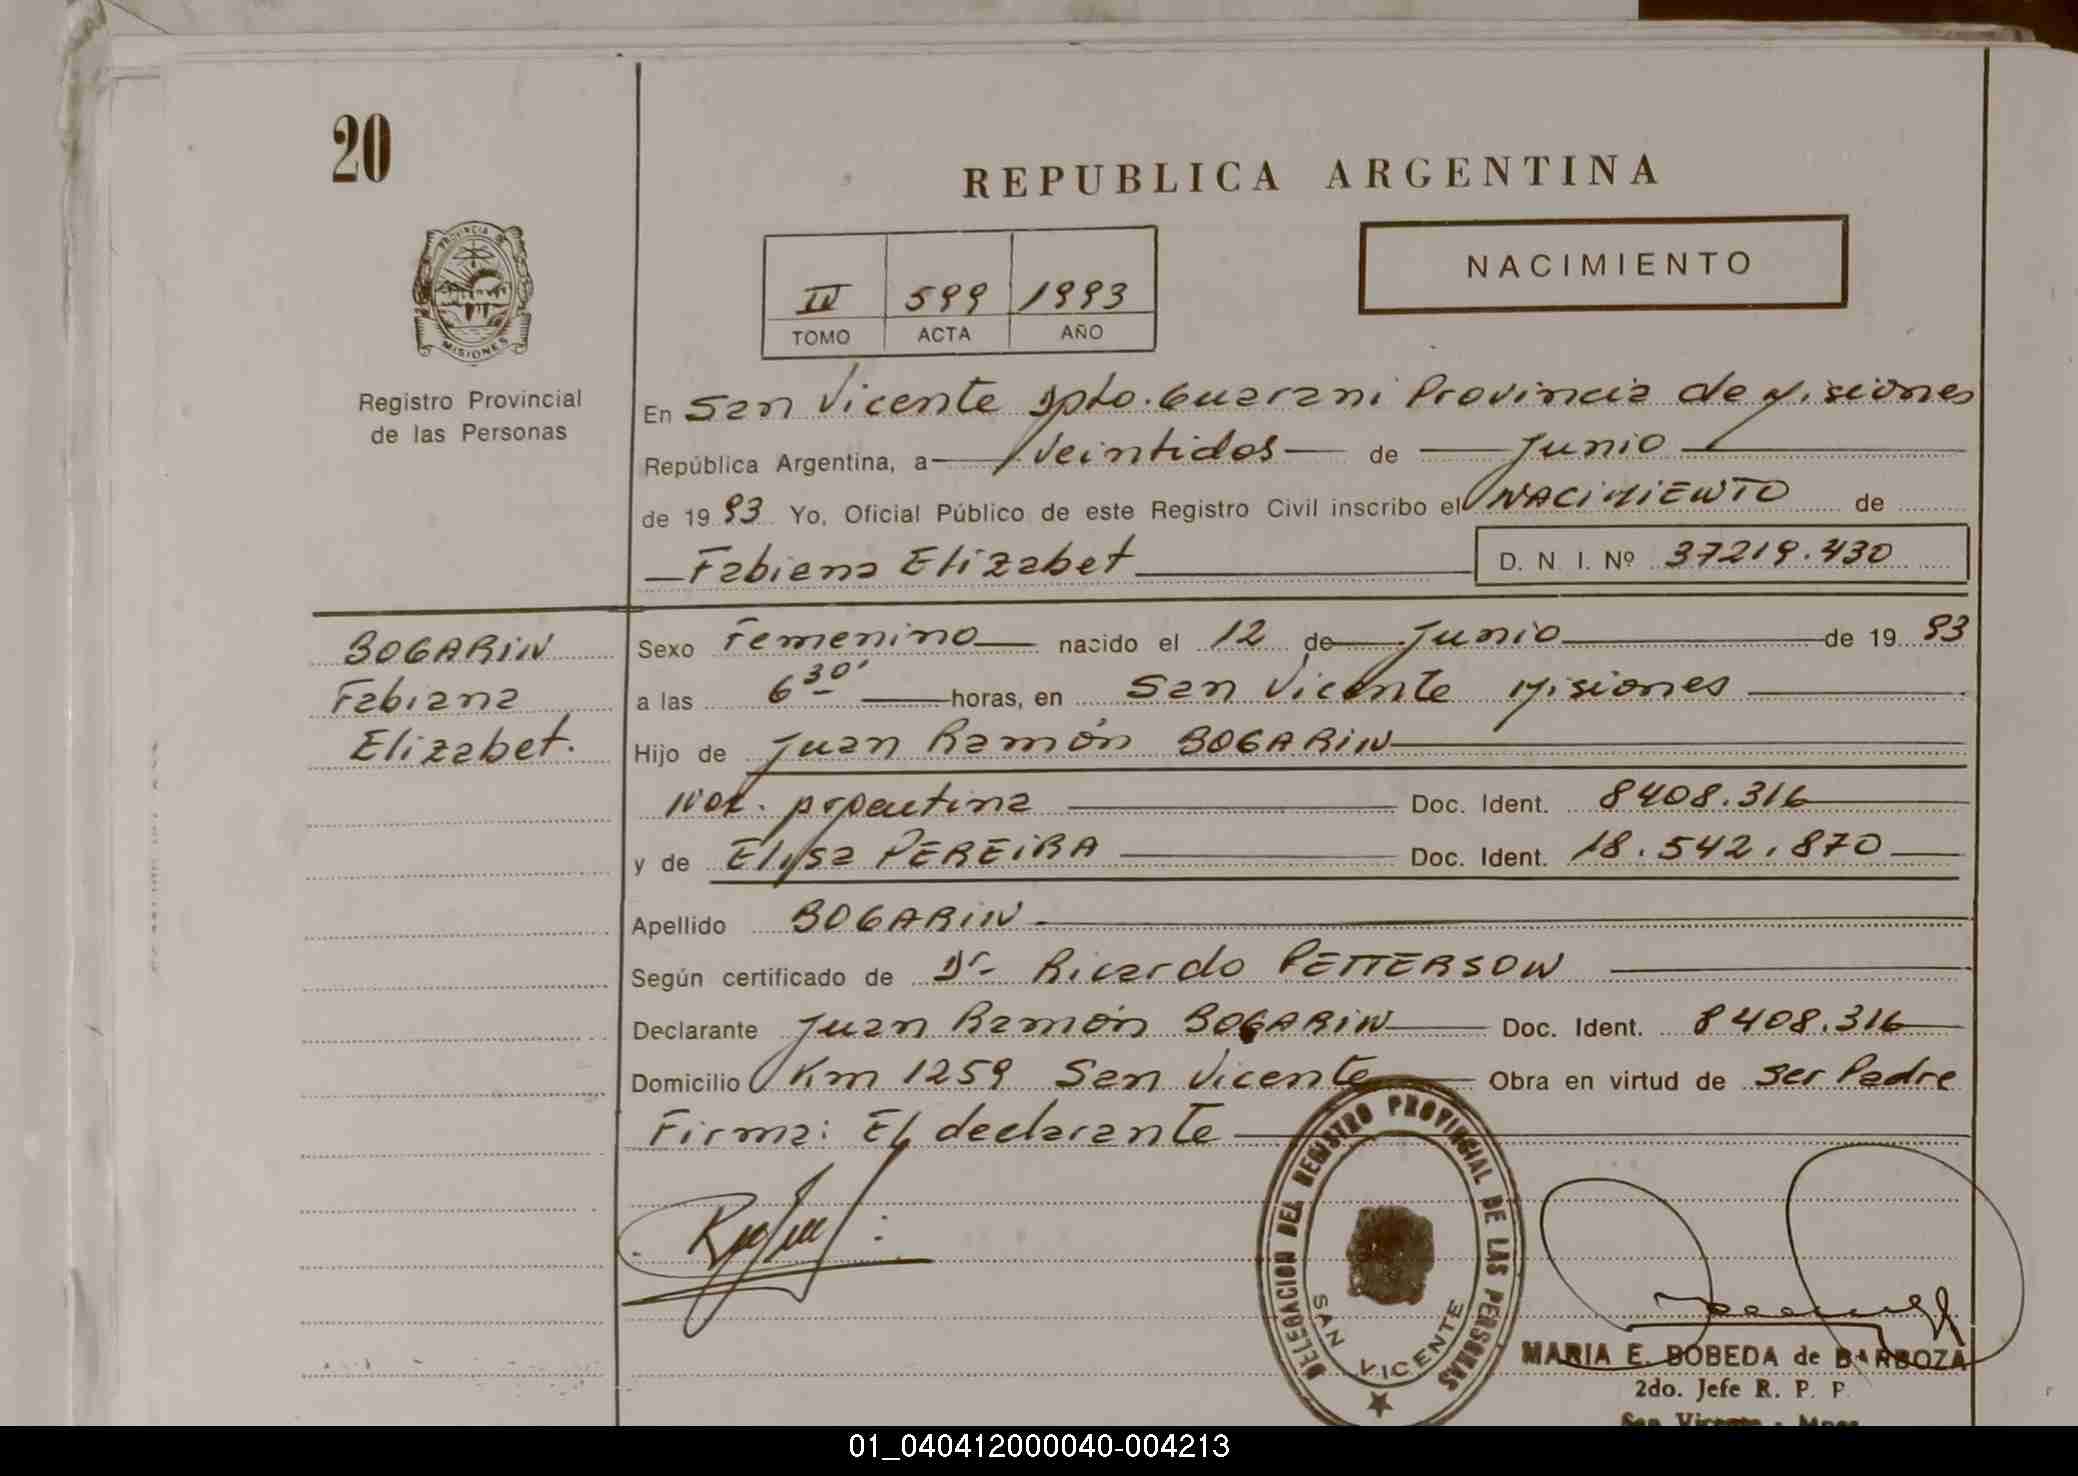 20
REPUBLICA ARGENTINA
PROVINCIA DE
MISIONES
NACIMIENTO
IV 599 1993
TOMO ACTA AÑO
Registro Provincial
de las Personas
En San Vicente Dpto. Guarani Provincia de Misiones
República Argentina, a Veintidos de Junio
de 19 93 Yo, Oficial Público de este Registro Civil inscribo el NACIMIENTO de
Fabiana Elizabet D. N. I. Nº 37219.430
BOGARIN
Fabiana
Elizabet.
Sexo Femenino nacido el 12 de Junio de 19 93
a las 6 30' horas, en San Vicente Misiones
Hijo de Juan Ramón BOGARIN
Nac. argentina Doc. Ident. 8408.316
y de Elisa PEREIRA Doc. Ident. 18.542.870
Apellido BOGARIN
Según certificado de Dr Ricardo PETTERSON
Declarante Juan Ramón BOGARIN Doc. Ident. 8408.316
Domicilio Km 1259 San Vicente Obra en virtud de Ser Padre
Firma: El declarante
DELEGACION DEL REGISTRO PROVINCIAL DE LAS PERSONAS
SAN VICENTE
MARIA E. BOBEDA de BARBOZA
2do. Jefe R. P. P.
San Vicente - Mnes
01_040412000040-004213